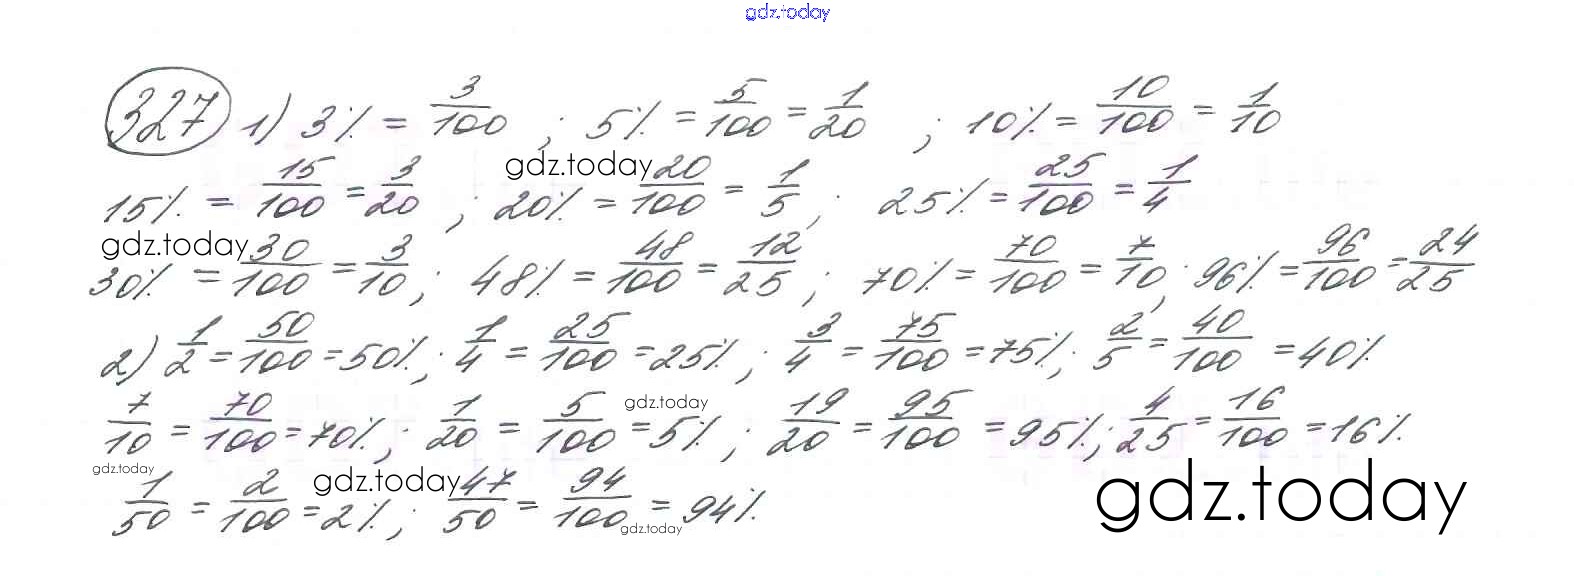 gdz.today
327 1) 3% = 3/100 ; 5% = 5/100 = 1/20 ; 10% = 10/100 = 1/10
gdz.today
15% = 15/100 = 3/20 ; 20% = 20/100 = 1/5 ; 25% = 25/100 = 1/4
gdz.today
30% = 30/100 = 3/10 ; 48% = 48/100 = 12/25 ; 70% = 70/100 = 7/10 ; 96% = 96/100 = 24/25
2) 1/2 = 50/100 = 50% ; 1/4 = 25/100 = 25% ; 3/4 = 75/100 = 75% ; 2/5 = 40/100 = 40%
gdz.today
7/10 = 70/100 = 70% ; 1/20 = 5/100 = 5% ; 19/20 = 95/100 = 95% ; 4/25 = 16/100 = 16%
gdz.today
gdz.today
gdz.today
1/50 = 2/100 = 2% ; 47/50 = 94/100 = 94%
gdz.today